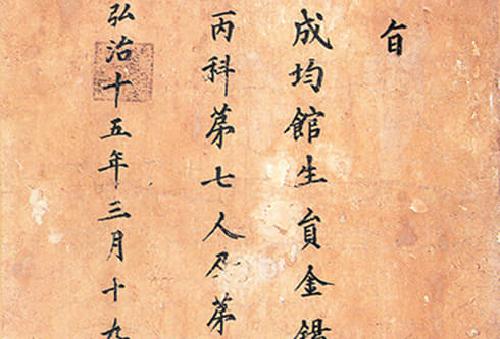 旨
成均館生員金
丙科第七人及第
弘治十五年三月十九